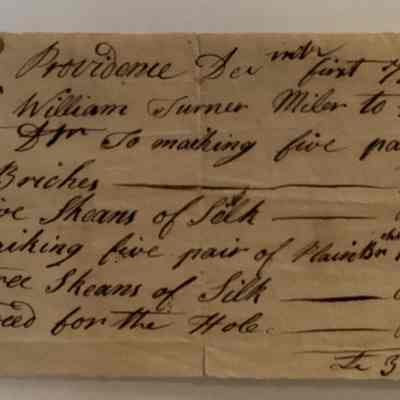 Providence Decmbr first
William Turner Miler to
Dtr To maiking five pa
Briches
ive Skeans of Silk
aiking five pair of Plain Brchs
ree Skeans of Silk
reed for the Hole
Le 3